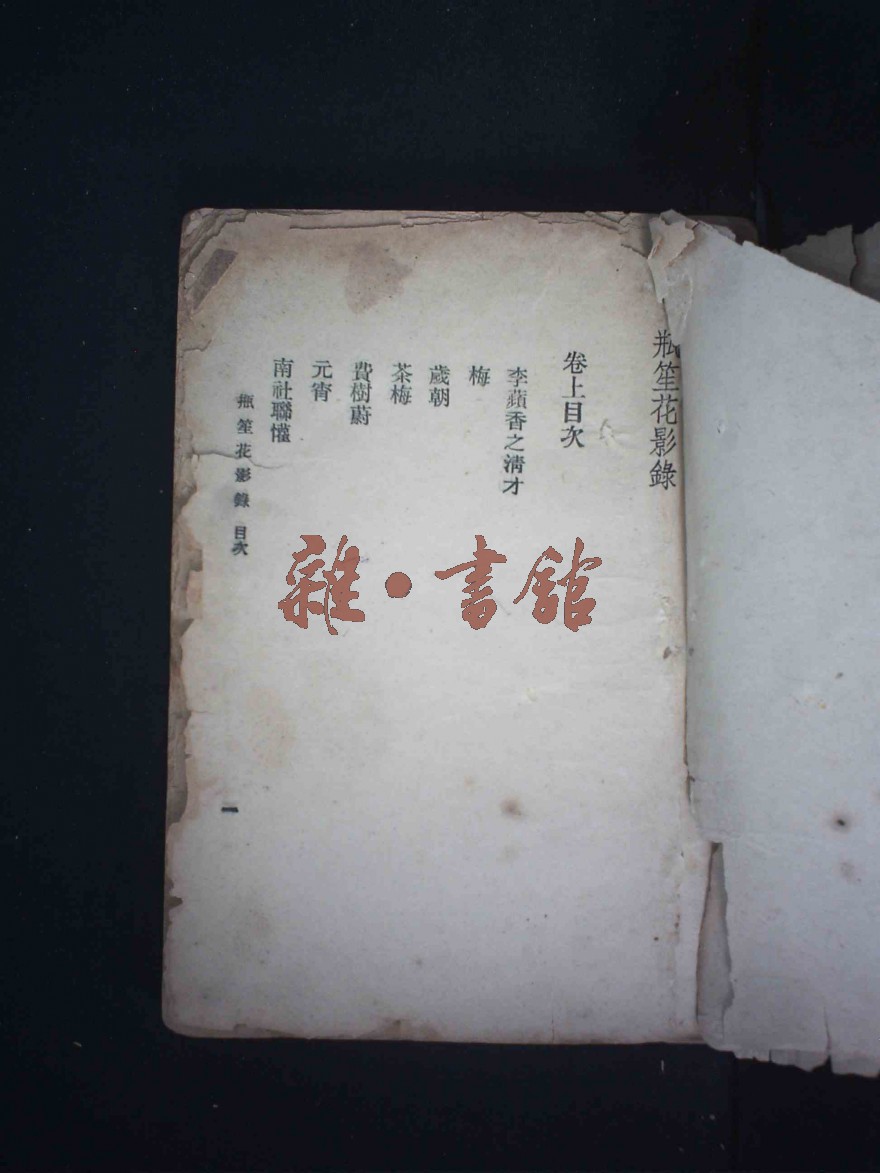 瓶笙花影錄
卷上目次
李蘋香之淸才
梅
歲朝
茶梅
費樹蔚
元宵
南社聯懽
瓶笙花影錄 目次
一
雜·書館